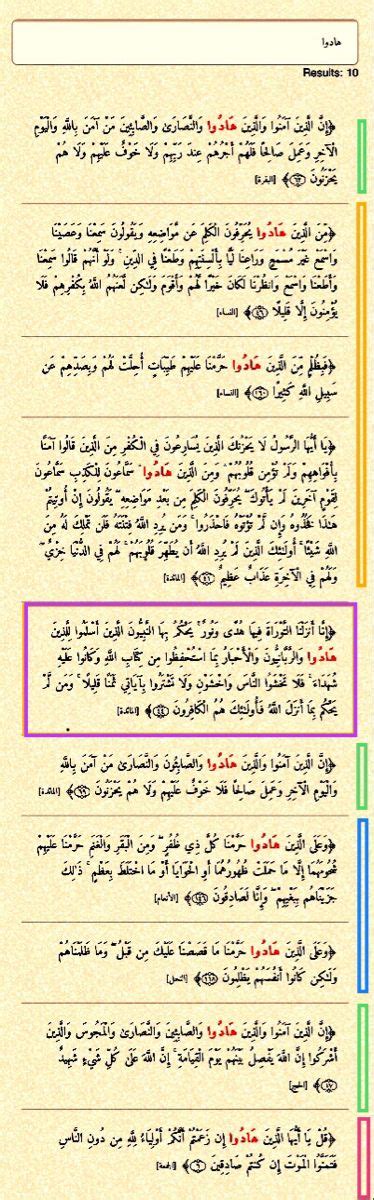 هادوا
Results: 10
﴿إِنَّ الَّذِينَ آمَنُوا وَالَّذِينَ هَادُوا وَالنَّصَارَىٰ وَالصَّابِئِينَ مَنْ آمَنَ بِاللَّهِ وَالْيَوْمِ
الْآخِرِ وَعَمِلَ صَالِحًا فَلَهُمْ أَجْرُهُمْ عِندَ رَبِّهِمْ وَلَا خَوْفٌ عَلَيْهِمْ وَلَا هُمْ
يَحْزَنُونَ ﴿٦٢﴾ [البقرة]
﴿مِّنَ الَّذِينَ هَادُوا يُحَرِّفُونَ الْكَلِمَ عَن مَّوَاضِعِهِ وَيَقُولُونَ سَمِعْنَا وَعَصَيْنَا
وَاسْمَعْ غَيْرَ مُسْمَعٍ وَرَاعِنَا لَيًّا بِأَلْسِنَتِهِمْ وَطَعْنًا فِي الدِّينِ ۚ وَلَوْ أَنَّهُمْ قَالُوا سَمِعْنَا
وَأَطَعْنَا وَاسْمَعْ وَانظُرْنَا لَكَانَ خَيْرًا لَّهُمْ وَأَقْوَمَ وَلَٰكِن لَّعَنَهُمُ اللَّهُ بِكُفْرِهِمْ فَلَا
يُؤْمِنُونَ إِلَّا قَلِيلًا ﴿٤٦﴾ [النساء]
﴿فَبِظُلْمٍ مِّنَ الَّذِينَ هَادُوا حَرَّمْنَا عَلَيْهِمْ طَيِّبَاتٍ أُحِلَّتْ لَهُمْ وَبِصَدِّهِمْ عَن
سَبِيلِ اللَّهِ كَثِيرًا ﴿١٦٠﴾ [النساء]
﴿يَا أَيُّهَا الرَّسُولُ لَا يَحْزُنكَ الَّذِينَ يُسَارِعُونَ فِي الْكُفْرِ مِنَ الَّذِينَ قَالُوا آمَنَّا
بِأَفْوَاهِهِمْ وَلَمْ تُؤْمِن قُلُوبُهُمْ ۛ وَمِنَ الَّذِينَ هَادُوا ۛ سَمَّاعُونَ لِلْكَذِبِ سَمَّاعُونَ
لِقَوْمٍ آخَرِينَ لَمْ يَأْتُوكَ ۖ يُحَرِّفُونَ الْكَلِمَ مِن بَعْدِ مَوَاضِعِهِ ۖ يَقُولُونَ إِنْ أُوتِيتُمْ
هَٰذَا فَخُذُوهُ وَإِن لَّمْ تُؤْتَوْهُ فَاحْذَرُوا ۚ وَمَن يُرِدِ اللَّهُ فِتْنَتَهُ فَلَن تَمْلِكَ لَهُ مِنَ
اللَّهِ شَيْئًا ۚ أُولَٰئِكَ الَّذِينَ لَمْ يُرِدِ اللَّهُ أَن يُطَهِّرَ قُلُوبَهُمْ ۚ لَهُمْ فِي الدُّنْيَا خِزْيٌ ۖ
وَلَهُمْ فِي الْآخِرَةِ عَذَابٌ عَظِيمٌ ﴿٤١﴾ [المائدة]
﴿إِنَّا أَنزَلْنَا التَّوْرَاةَ فِيهَا هُدًى وَنُورٌ ۚ يَحْكُمُ بِهَا النَّبِيُّونَ الَّذِينَ أَسْلَمُوا لِلَّذِينَ
هَادُوا وَالرَّبَّانِيُّونَ وَالْأَحْبَارُ بِمَا اسْتُحْفِظُوا مِن كِتَابِ اللَّهِ وَكَانُوا عَلَيْهِ
شُهَدَاءَ ۚ فَلَا تَخْشَوُا النَّاسَ وَاخْشَوْنِ وَلَا تَشْتَرُوا بِآيَاتِي ثَمَنًا قَلِيلًا ۚ وَمَن لَّمْ
يَحْكُم بِمَا أَنزَلَ اللَّهُ فَأُولَٰئِكَ هُمُ الْكَافِرُونَ ﴿٤٤﴾ [المائدة]
﴿إِنَّ الَّذِينَ آمَنُوا وَالَّذِينَ هَادُوا وَالصَّابِئُونَ وَالنَّصَارَىٰ مَنْ آمَنَ بِاللَّهِ
وَالْيَوْمِ الْآخِرِ وَعَمِلَ صَالِحًا فَلَا خَوْفٌ عَلَيْهِمْ وَلَا هُمْ يَحْزَنُونَ ﴿٦٩﴾ [المائدة]
﴿وَعَلَى الَّذِينَ هَادُوا حَرَّمْنَا كُلَّ ذِي ظُفُرٍ ۖ وَمِنَ الْبَقَرِ وَالْغَنَمِ حَرَّمْنَا عَلَيْهِمْ
شُحُومَهُمَا إِلَّا مَا حَمَلَتْ ظُهُورُهُمَا أَوِ الْحَوَايَا أَوْ مَا اخْتَلَطَ بِعَظْمٍ ۚ ذَٰلِكَ
جَزَيْنَاهُم بِبَغْيِهِمْ ۖ وَإِنَّا لَصَادِقُونَ ﴿١٤٦﴾ [الأنعام]
﴿وَعَلَى الَّذِينَ هَادُوا حَرَّمْنَا مَا قَصَصْنَا عَلَيْكَ مِن قَبْلُ ۖ وَمَا ظَلَمْنَاهُمْ
وَلَٰكِن كَانُوا أَنفُسَهُمْ يَظْلِمُونَ ﴿١١٨﴾ [النحل]
﴿إِنَّ الَّذِينَ آمَنُوا وَالَّذِينَ هَادُوا وَالصَّابِئِينَ وَالنَّصَارَىٰ وَالْمَجُوسَ وَالَّذِينَ
أَشْرَكُوا إِنَّ اللَّهَ يَفْصِلُ بَيْنَهُمْ يَوْمَ الْقِيَامَةِ ۚ إِنَّ اللَّهَ عَلَىٰ كُلِّ شَيْءٍ شَهِيدٌ
﴿١٧﴾ [الحج]
﴿قُلْ يَا أَيُّهَا الَّذِينَ هَادُوا إِن زَعَمْتُمْ أَنَّكُمْ أَوْلِيَاءُ لِلَّهِ مِن دُونِ النَّاسِ
فَتَمَنَّوُا الْمَوْتَ إِن كُنتُمْ صَادِقِينَ ﴿٦﴾ [الجمعة]